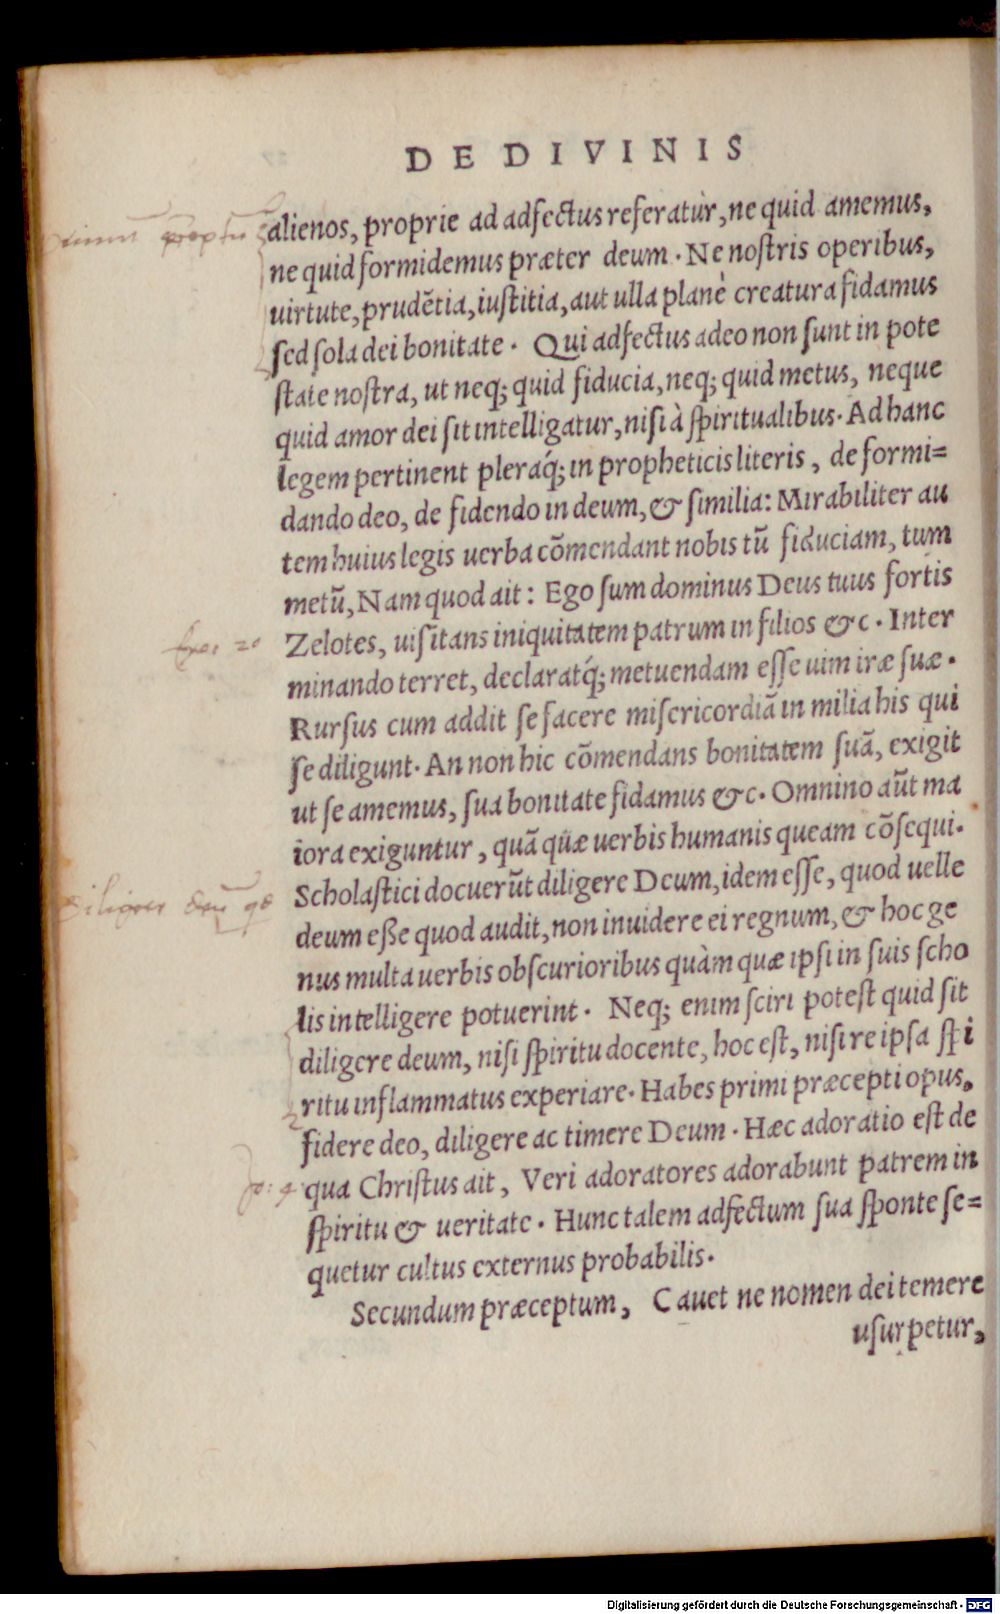 DE DIVINIS
alienos, proprie ad adfectus referatùr, ne quid amemus,
ne quid formidemus præter deum. Ne nostris operibus,
uirtute, prudẽtia, iustitia, aut ulla planè creatura fidamus
sed sola dei bonitate. Qui adfectus adeo non sunt in pote
state nostra, ut neq; quid fiducia, neq; quid metus, neque
quid amor dei sit intelligatur, nisi à spiritualibus. Ad hanc
legem pertinent pleraq́; in propheticis literis, de formi=
dando deo, de fidendo in deum, & similia: Mirabiliter au
tem huius legis uerba cõmendant nobis tũ fiduciam, tum
metũ, Nam quod ait: Ego sum dominus Deus tuus fortis
Exo: 20
Zelotes, uisitans iniquitatem patrum in filios &c. Inter
minando terret, declaratq́; metuendam esse uim iræ suæ.
Rursus cum addit se facere misericordiã in milia his qui
se diligunt. An non hic cõmendans bonitatem suã, exigit
ut se amemus, sua bonitate fidamus &c. Omnino aũt ma
iora exiguntur, quã quæ uerbis humanis queam cõsequi.
Scholastici docuerũt diligere Deum, idem esse, quod uelle
deum eße quod audit, non inuidere ei regnum, & hoc ge
nus multa uerbis obscurioribus quàm quæ ipsi in suis scho
lis intelligere potuerint. Neq; enim sciri potest quid sit
diligere deum, nisi spiritu docente, hoc est, nisi re ipsa spi
ritu inflammatus experiare. Habes primi præcepti opus,
fidere deo, diligere ac timere Deum. Hæc adoratio est de
Jo: 4
qua Christus ait, Veri adoratores adorabunt patrem in
spiritu & ueritate. Hunc talem adfectum sua sponte se=
quetur cultus externus probabilis.
Secundum præceptum, Cauet ne nomen dei temere
usurpetur,
Digitalisierung gefördert durch die Deutsche Forschungsgemeinschaft - DFG